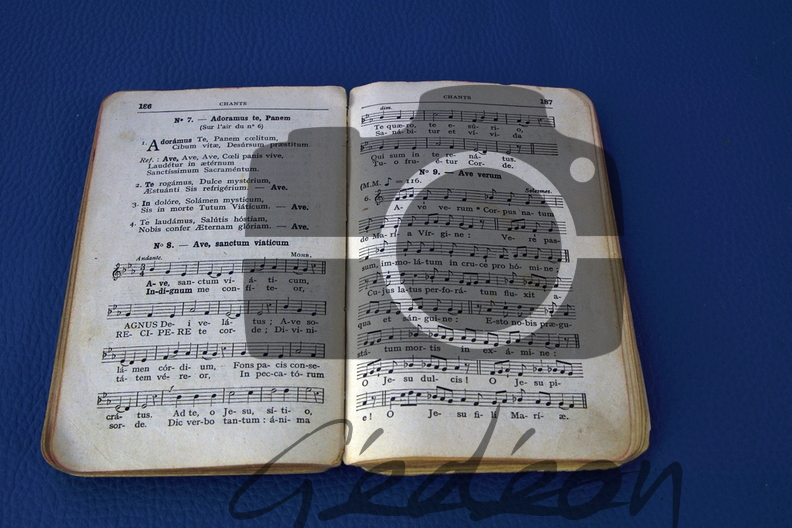 186 CHANTS
Nº 7. — Adoramus te, Panem
(Sur l'air du nº 6)
1. Adorámus Te, Panem cœlitum,
Cibum vitæ, Desúrsum præstitum.
Ref. : Ave, Ave, Ave, Cœli panis vive,
Laudétur in ætérnum
Sanctíssimum Sacraméntum.
2. Te rogámus, Dulce mystérium,
Æstuánti Sis refrigérium. — Ave.
3. In dolóre, Solámen mysticum,
Sis in morte Tutum Viáticum. — Ave.
4. Te laudámus, Salútis hóstiam,
Nobis confer Æternam glóriam. — Ave.
Nº 8. — Ave, sanctum viaticum
Andante.
A- ve, sanc- tum vi- á- ti- cum,
In-dí-gnum me con- fi- te- or,
AGNUS De- i ve- lá- tus ; A-ve so-
RE- CI- PE- RE te cor- de ; Di- ví- ni-
lá- men cór- di- um, Fons pa- cis con-se-
tá- tem vé- re- or, In pec-ca- tó- rum
crá- tus. Ad te, o Je- su, sí- ti- o,
sor- de. Dic ver-bo tan-tum : á-ni- ma
CHANTS 187
dim.
Te quæ-ro, te e- sú- ri- o,
Sa- ná-bi- tur et vi- vi- da
Qui sum in te- re- ná- tus.
Tu- o fru- é- tur Cor- de.
Nº 9. — Ave verum
(M.M. ♪ = 116. Solesmes.
6. A- ve ve- rum * Cor- pus na- tum
de Ma-rí- a Vír- gi- ne : Ve- re pas-
sum, im-mo-lá-tum in cru-ce pro hó- mi-ne :
Cu-jus la-tus per-fo-rá- tum flu- xit a-
qua et sán-gui-ne : E-sto no-bis præ-gu-
stá- tum mor-tis in ex- á- mi- ne :
O Je- su dul- cis ! O Je- su pi-
e ! O Je- su fi- li Ma- rí- æ.
Gédéon